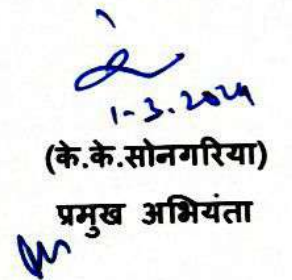 1-3.2024
(के.के.सोनगरिया)
प्रमुख अभियंता